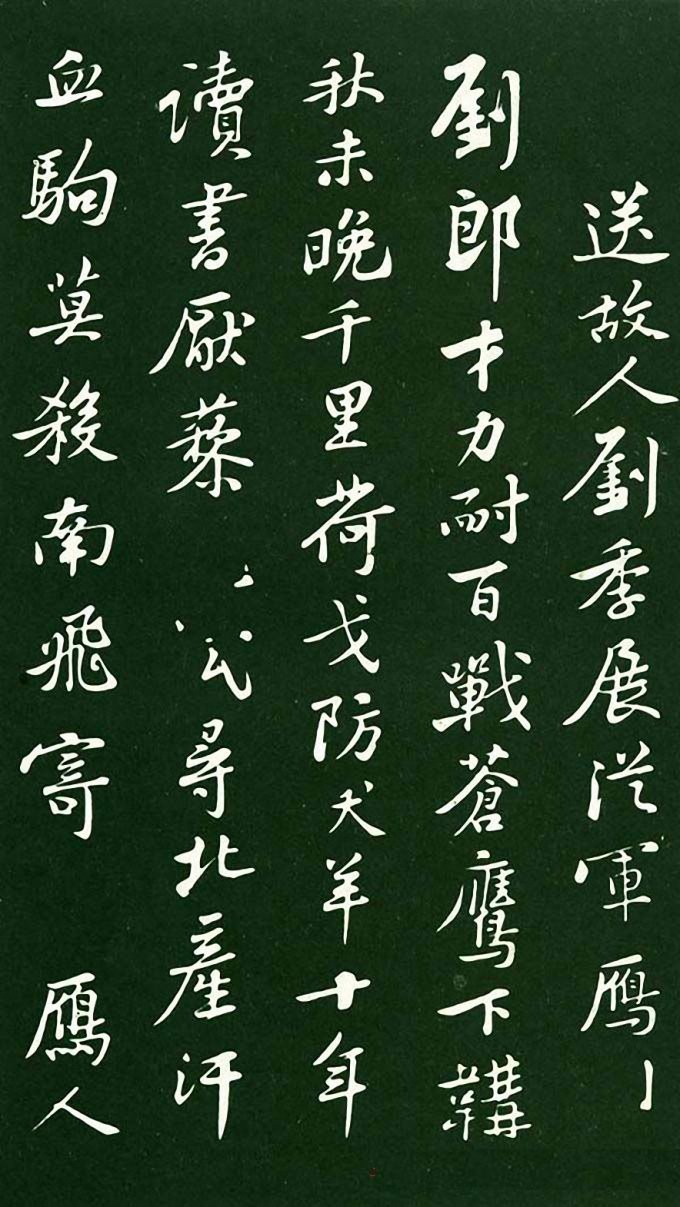 送故人劉季展從軍雁
劉郎才力耐百戰蒼鷹下韝
秋未晚千里荷戈防犬羊十年
讀書厭藜 尋北產汗
血駒莫殺南飛寄 鴈人